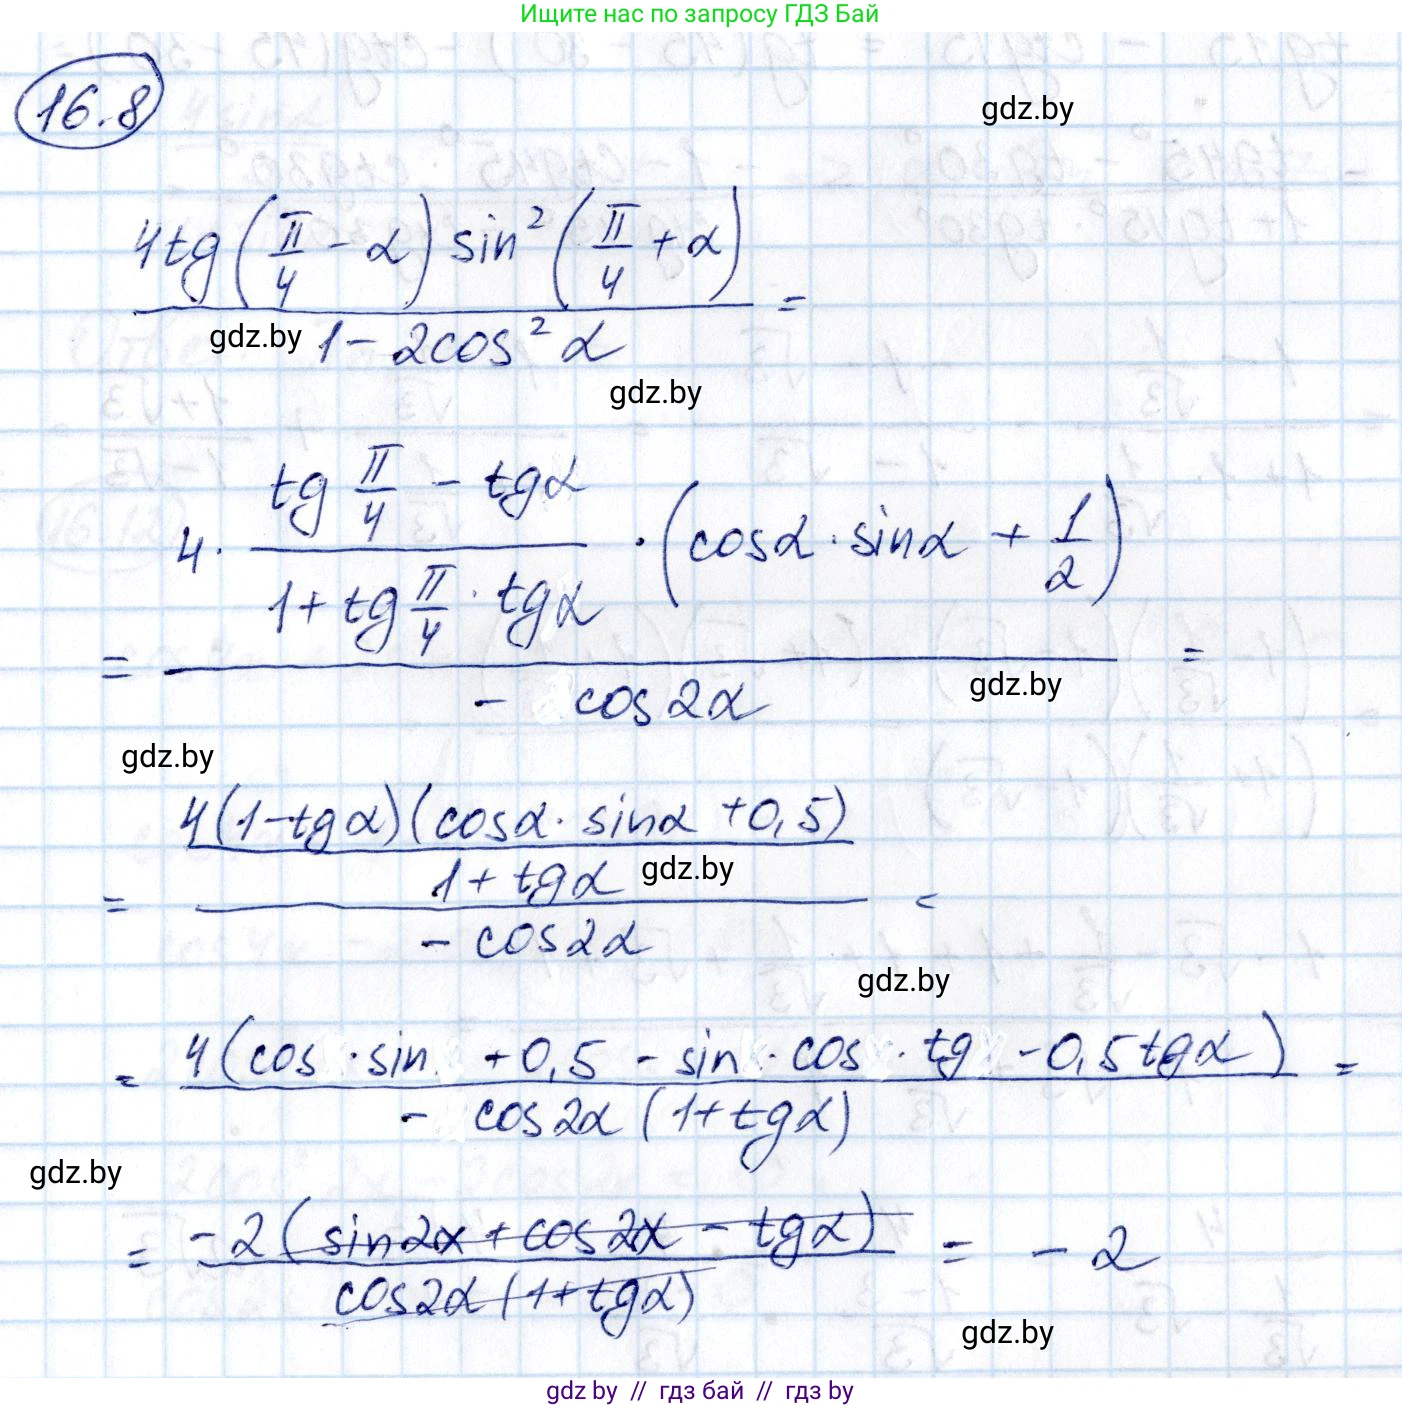 Ищите нас по запросу ГДЗ Бай
16.8
gdz.by
4tg(π/4 - α) sin²(π/4 + α) / 1 - 2cos²α =
gdz.by
gdz.by
= 4 · (tg π/4 - tgα / 1 + tg π/4 · tgα) · (cosα · sinα + 1/2) / - cos2α =
gdz.by
gdz.by
= 4(1-tgα)(cosα · sinα + 0,5) / 1 + tgα / - cos2α =
gdz.by
gdz.by
= 4(cos · sin + 0,5 - sin · cos · tg - 0,5tgα) / - cos2α (1+tgα) =
gdz.by
= -2(sin2x + cos2x - tgα) / cos2α (1+tgα) = - 2
gdz.by
gdz by // гдз бай // гдз by